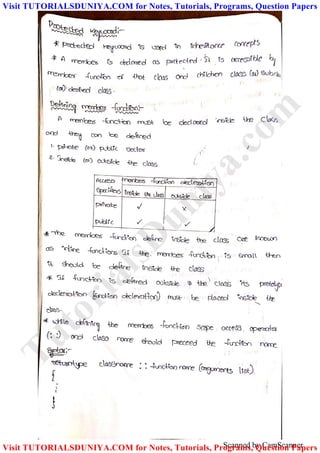 Visit TUTORIALSDUNIYA.COM for Notes, Tutorials, Programs, Question Papers
Protected keyword:-
* protected keyword is used in inheritance concepts
* A member is declared as protected. It is accessible by
member function of that class and children class (or) subclass
(or) derived class.
Defining member function:-
A member function must be declared inside the class
and they can be defined
1. private (or) public sector
2. Inside (or) outside the class
Access Specifiers member function declaration
inside the class outside class
private ✓ x
public ✓ ✓
* The member function define inside the class are known
as inline functions. If the member function is small then
it should be define inside the class
* If function is defined outside the class its prototype
declaration (function declaration) must be placed inside the
class.
* while defining the member function scope access operator
(::) and class name should preceed the function name
Syntax:-
returntype classname :: function name (arguments list)
{
⋮
}
TutorialsDuniya.com
Scanned by CamScanner
Visit TUTORIALSDUNIYA.COM for Notes, Tutorials, Programs, Question Papers